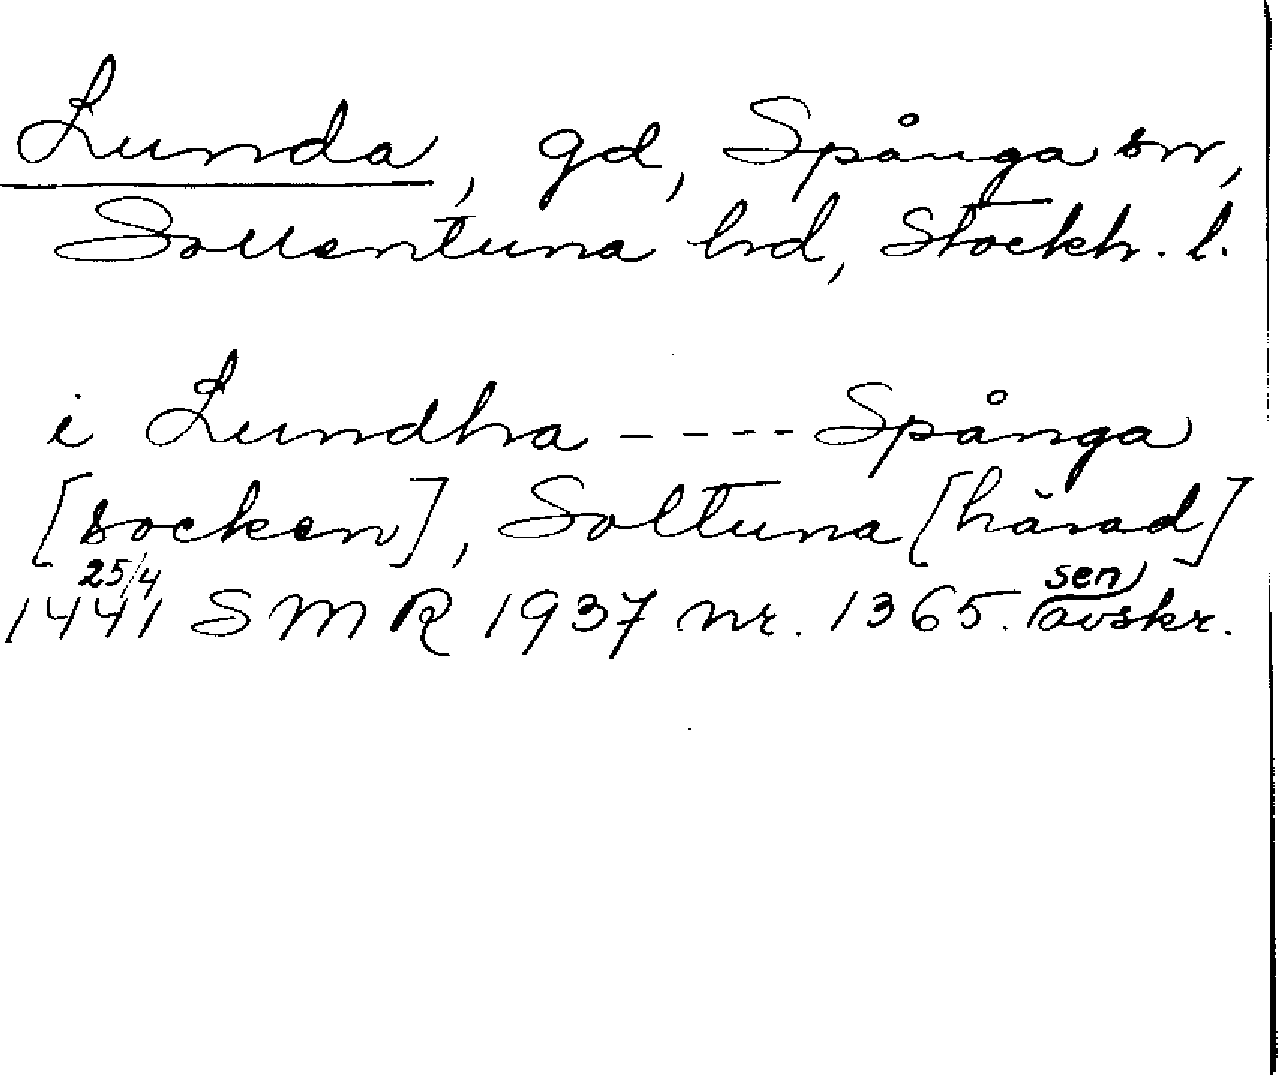 Lunda, gd, Spånga sn,
Sollentuna hd, Stockh. l.
i Lundha ---- Spånga
[socken], Soltuna [härad]
25/4 sen
1441 SMR 1937 nr. 1365. avskr.